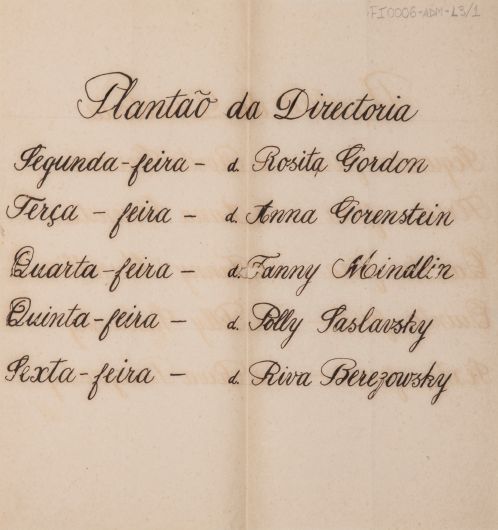 FI0006-ADM-L3/1
Plantão da Directoria
Segunda-feira - d. Rosita Gordon
Terça - feira - d. Anna Gorenstein
Quarta-feira - d. Fanny Mindlin
Quinta-feira - d. Polly Saslavsky
Sexta-feira - d. Riva Berezowsky